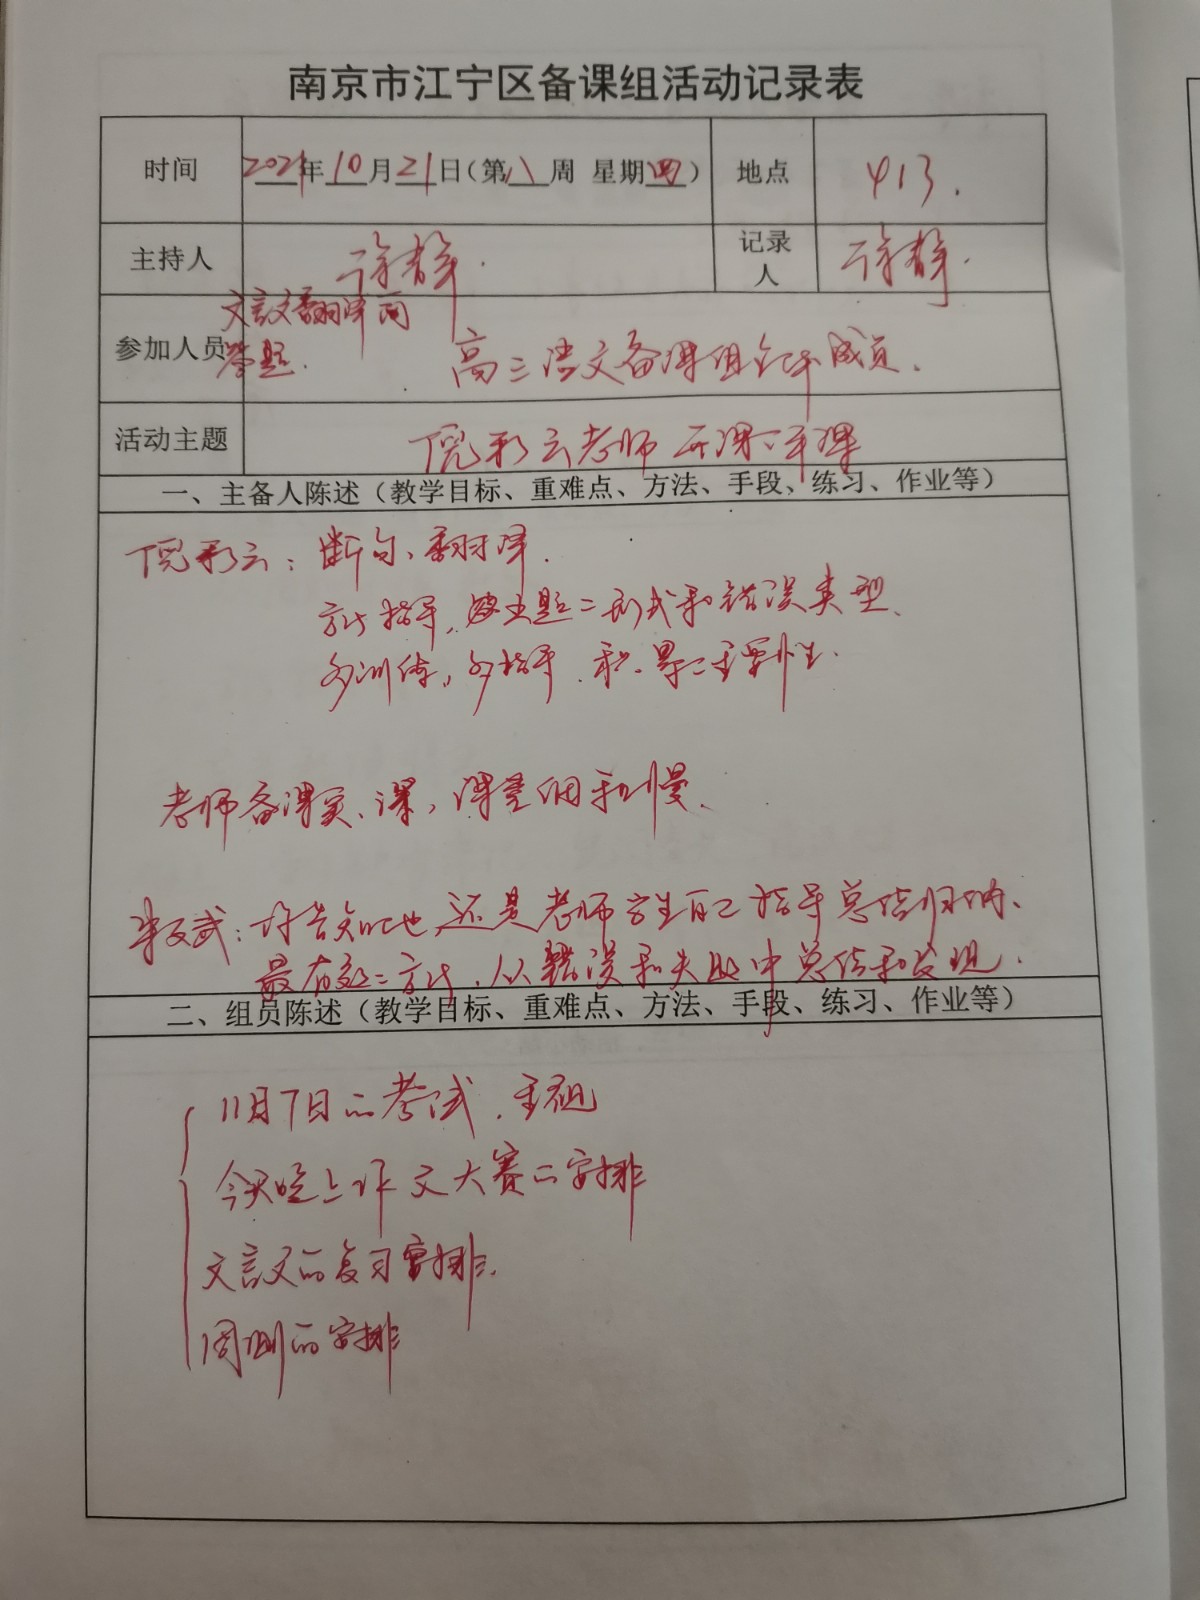 南京市江宁区备课组活动记录表
时间 2021年10月21日(第八周 星期四) 地点 413.
主持人 徐静. 记录人 徐静.
文言文翻译两
参加人员 答题. 高三语文备课组全体成员.
活动主题 倪彩云老师开课、评课
一、主备人陈述（教学目标、重难点、方法、手段、练习、作业等）
倪彩云：断句、翻译.
方法指导，出题的形式和错误类型.
多训练，多指导.积累的重要性.
老师备课实、课，课堂细和慢.
武：告知 还是老师学生自己指导总结归纳、
最有效的方法，从错误和失败中总结和发现.
二、组员陈述（教学目标、重难点、方法、手段、练习、作业等）
11月7日的考试，
今天晚上作文大赛的安排
文言文的复习安排.
周测的安排